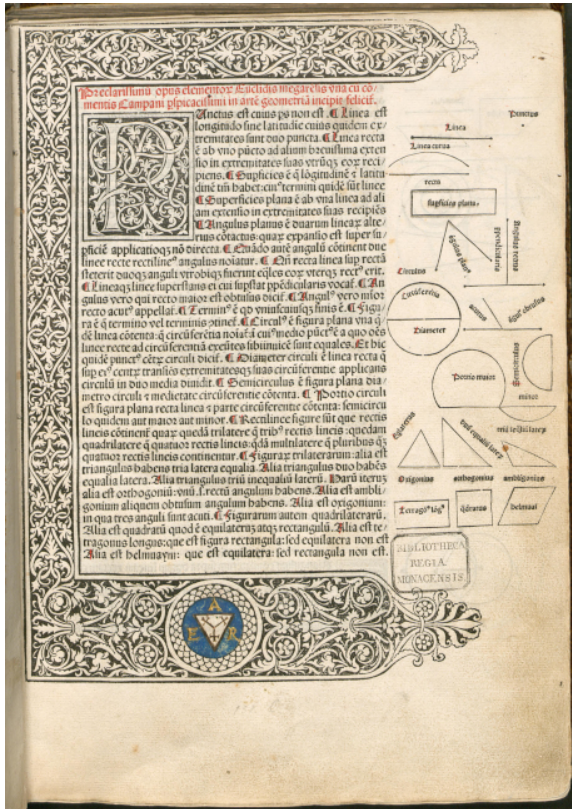 Preclarissimũ opus elementorꝝ Euclidis megarẽsis vna cũ cõ-
mentis Campani ꝑspicacissimi in artẽ geometriã incipit felicit̃.
Punctus est cuius ps̃ non est. ¶ Linea est
longitudo sine latitudine cuius quidem ex-
tremitates sunt duo puncta. ¶ Linea recta
ẽ ab vno pũcto ad alium breuissima exten-
sio in extremitates suas vtrũqꝫ eorꝝ reci-
piens. ¶ Supficies ẽ q̃ lõgitudinẽ ⁊ latitu-
dinẽ tm̃ habet: cuiꝰ termini quidẽ sũt linee
¶ Superficies plana ẽ ab vna linea ad ali-
am extensio in extremitates suas recipiẽs
¶ Angulus planus ẽ duarum linearꝝ alte-
rius cõtactus: quarꝝ expansio est super su-
pficiẽ applicatioqꝫ nõ directa. ¶ Quãdo autẽ angulũ cõtinent due
linee recte rectilineꝰ angulus noiatur. ¶ Qñ recta linea sup rectã
steterit duoqꝫ anguli vtrobiqꝫ fuerint eq̃les eorꝝ vterqꝫ rectꝰ erit.
¶ Lineaqꝫ linee superstans ei cui supstat ppẽdicularis vocat̃. ¶ An-
gulus vero qui recto maior est obtusus dicit̃. ¶ Angulꝰ vero mior
recto acutꝰ appellat̃. ¶ Terminꝰ ẽ qd̃ vniuscuiusqꝫ finis ẽ. ¶ Figu-
ra ẽ q̃ termino vel terminis ↄtinet̃. ¶ Circulꝰ ẽ figura plana vna q̃-
dẽ linea cõtenta: q̃ circũferẽtia noiat̃: in cuiꝰ medio pũctꝰ ẽ: a quo oẽs
linee recte ad circũferẽtiã exeũtes sibiinuicẽ sunt equales. Et hic
quidẽ punctꝰ cẽtꝝ circuli dicit̃. ¶ Diameter circuli ẽ linea recta q̃
sup eiꝰ centꝝ trãsiẽs extremitatesqꝫ suas circũferẽtie applicans
circulũ in duo media diuidit. ¶ Semicirculus ẽ figura plana dia-
metro circuli ⁊ medietate circũferẽtie cõtenta. ¶ Portio circuli
est figura plana recta linea ⁊ parte circũferẽtie cõtenta: semicircu-
lo quidem aut maior aut minor. ¶ Rectilinee figure sũt que rectis
lineis cõtinent̃ quarꝝ quedã trilatere q̃ tribꝰ rectis lineis: quedam
quadrilatere q̃ quatuor rectis lineis: qdã multilatere q̃ pluribus qꝫ
quatuor rectis lineis continentur. ¶ Figurarꝝ trilaterarum: alia est
triangulus habens tria latera equalia. Alia triangulus duo habẽs
equalia latera. Alia triangulus triũ inequaliũ laterũ. Harũ iterũ
alia est orthogoniũ: vnũ .s. rectũ angulum habens. Alia est ambli-
gonium aliquem obtusum angulum habens. Alia est oxigonium:
in qua tres anguli sunt acuti. ¶ Figurarum autem quadrilaterarũ.
Alia est quadratũ quod ẽ equilaterũ atqꝫ rectangulũ. Alia est te-
tragonus longus: que est figura rectangula: sed equilatera non est.
Alia est helmuaym: que est equilatera: sed rectangula non est.
Punctus
Linea
Linea curua
recta
supficies plana.
Circulus
Circũferẽtia
Diameter
Portio maior
Semicirculus
minor
Oxigonius
orthogonius
ambligonius
Tetragonꝰ lõgꝰ
q̃dratus
helmuai
BIBLIOTHECA
REGIA
MONACENSIS.
A
E R